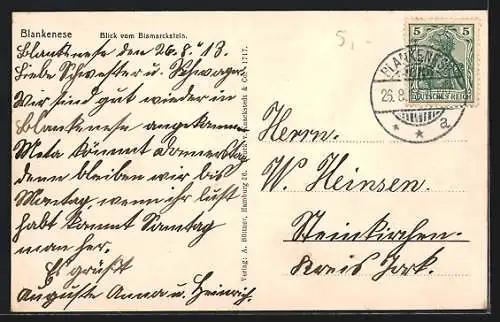 Blankenese    Blick vom Bismarckstein.
Blankenese den 26.8.13.
Liebe Schwester u. Schwager
Wir sind gut wieder in
Blankenese angekommen
Meta kommt Donnerstag
denn bleiben wir bis
Montag, wenn ihr lust
habt kommt Sonntag
man her.
Es grüßt
Auguste Anna u. Heinrich.
Verlag: A. Büttner, Hamburg 26.
& Co. 1717.
5,-
5 5
DEUTSCHES REICH
BLANKENESE
26.8.
* * a
Herrn.
W. Heinsen.
Steinkirchen.
Kreis Jork.